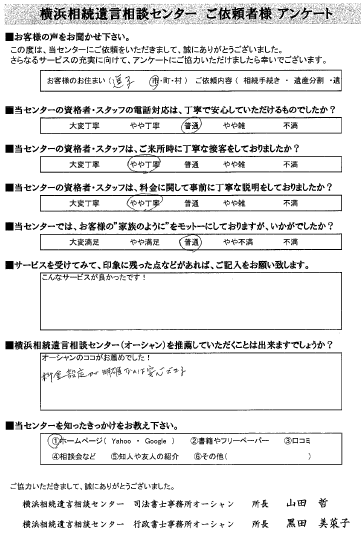 横浜相続遺言相談センター ご依頼者様 アンケート
■お客様の声をお聞かせ下さい。
この度は、当センターにご依頼をいただきまして、誠にありがとうございました。
さらなるサービスの充実に向けて、アンケートにご協力いただけましたら幸いでございます。
お客様のお住まい( 逗子 市・町・村) ご依頼内容 ( 相続手続き ・ 遺産分割 ・遺
■当センターの資格者・スタッフの電話対応は、丁寧で安心していただけるものでしたか?
大変丁寧 やや丁寧 普通 やや雑 不満
■当センターの資格者・スタッフは、ご来所時に丁寧な接客をしておりましたか?
大変丁寧 やや丁寧 普通 やや雑 不満
■当センターの資格者・スタッフは、料金に関して事前に丁寧な説明をしておりましたか?
大変丁寧 やや丁寧 普通 やや雑 不満
■当センターでは、お客様の"家族のように"をモットーにしておりますが、いかがでしたか?
大変満足 やや満足 普通 やや不満 不満
■サービスを受けてみて、印象に残った点などがあれば、ご記入をお願い致します。
こんなサービスが良かったです!
■横浜相続遺言相談センター(オーシャン)を推薦していただくことは出来ますでしょうか?
オーシャンのココがお薦めでした!
料金設定が明確
■当センターを知ったきっかけをお教え下さい。
①ホームページ( Yahoo ・ Google ) ②書籍やフリーペーパー ③口コミ
④相談会など ⑤知人や友人の紹介 ⑥その他( )
ご協力いただきまして、誠にありがとうございました。
横浜相続遺言相談センター 司法書士事務所オーシャン 所長 山田 哲
横浜相続遺言相談センター 行政書士事務所オーシャン 所長 黒田 美菜子